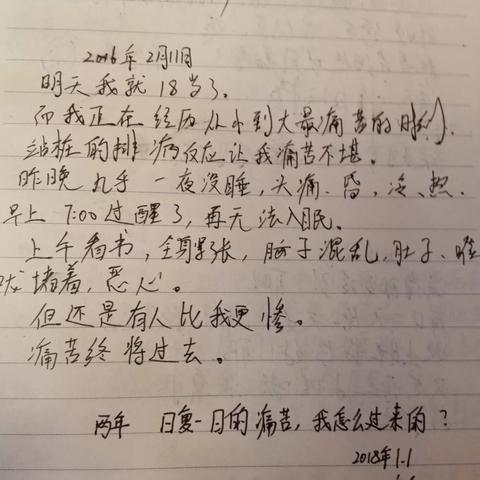 2016年2月11日
明天我就18岁了。
而我正在经历从小到大最痛苦的时分.
站桩的排病反应让我痛苦不堪。
昨晚几乎一夜没睡,头痛、昏、冷、热.
早上7:00过醒了,再无法入眠。
上午看书,全身紧张,脑子混乱,肚子、喉
咙堵着,恶心。
但还是有人比我更惨。
痛苦终将过去。
两年 日复一日的痛苦,我怎么过来的?
2018年1.1